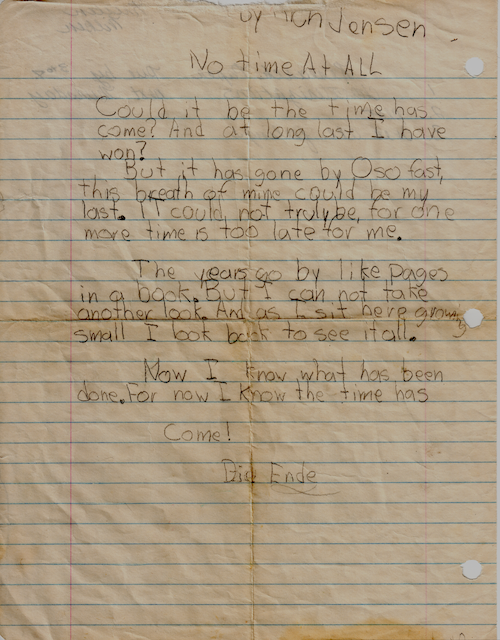 by Jensen
No time At ALL
Could it be the time has
come? And at long last I have
won?
But it has gone by Oso fast,
this breath of mine could be my
last. IT could not truly be, for one
more time is too late for me.
The years go by like pages
in a book. But I can not take
another look. And as I sit here growing
small I look back to see it all.
Now I know what has been
done. For now I know the time has
Come!
Die Ende